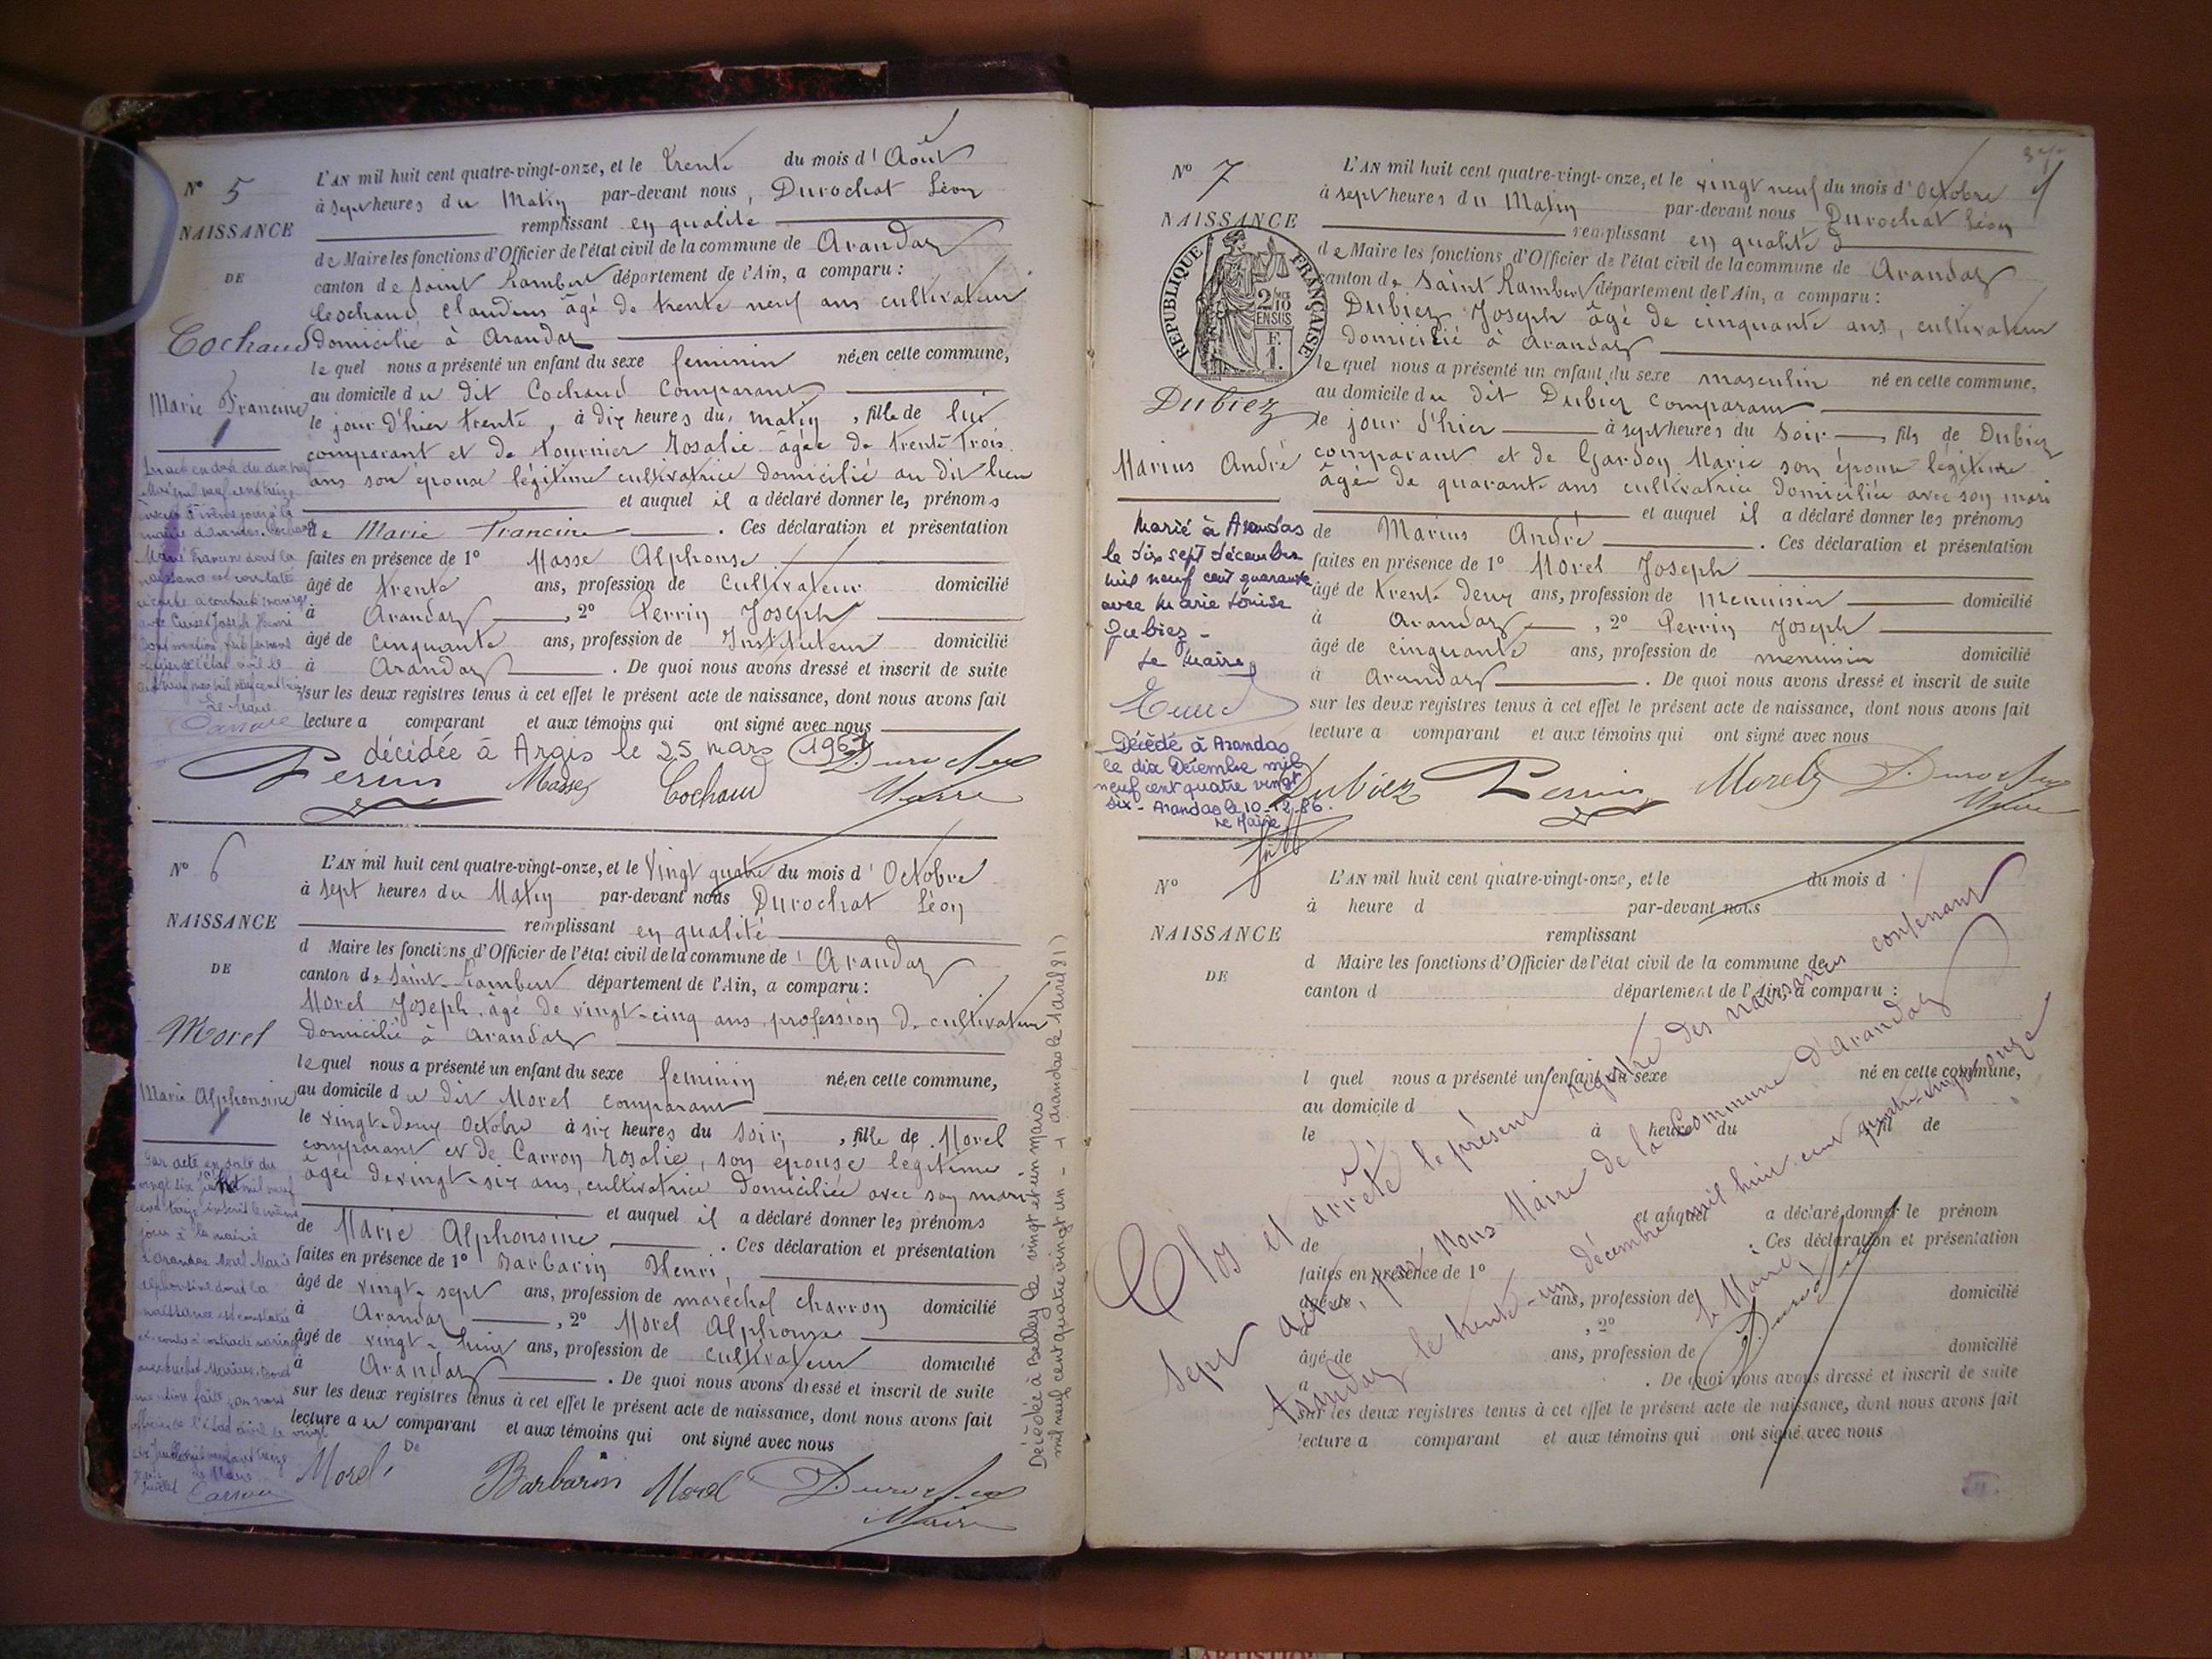 N° 5
NAISSANCE
DE
Cochaud
Marie Francine
L'AN mil huit cent quatre-vingt-onze, et le trente du mois d'Août
à sept heures du Matin par-devant nous, Durochat Léon
remplissant en qualité
de Maire les fonctions d'Officier de l'état civil de la commune de Arandas
canton de Saint Rambert département de l'Ain, a comparu :
Cochaud Claudius âgé de trente neuf ans cultivateur
domicilié à Arandas
lequel nous a présenté un enfant du sexe feminin née en cette commune,
au domicile du dit Cochaud Comparant
le jour d'hier trente, à dix heures du matin, fille de lui
comparant et de Tournier Rosalie âgée de trente trois
ans son épouse légitime cultivatrice domicilié au dit lieu
et auquel il a déclaré donner les prénoms
de Marie Francine . Ces déclaration et présentation
faites en présence de 1° Masse Alphonse
âgé de trente ans, profession de Cultivateur domicilié
à Arandas, 2° Perrin Joseph
âgé de cinquante ans, profession de Instituteur domicilié
à Arandas . De quoi nous avons dressé et inscrit de suite
sur les deux registres tenus à cet effet le présent acte de naissance, dont nous avons fait
lecture a comparant et aux témoins qui ont signé avec nous
décédée à Argis le 25 mars
Perrin Masse Cochaud Durochat
Maire
mairie d'Arandas. Cochaud
Marie Francine dont la
naissance est constatée
ci-contre a contracté mariage
avec Joseph Henri
Le Maire
N° 6
NAISSANCE
DE
Morel
Marie Alphonsine
L'AN mil huit cent quatre-vingt-onze, et le Vingt quatre du mois d'Octobre
à sept heures du Matin par-devant nous Durochat Léon
remplissant en qualité
d Maire les fonctions d'Officier de l'état civil de la commune de Arandas
canton de Saint-Rambert département de l'Ain, a comparu :
Morel Joseph, âgé de vingt-cinq ans profession de cultivateur
domicilié à Arandas
lequel nous a présenté un enfant du sexe feminin née en cette commune,
au domicile du dit Morel comparant
le vingt-deux Octobre à six heures du soir, fille de Morel
comparant et de Carron Rosalie, son épouse légitime
âgée de vingt-six ans, cultivatrice domiciliée avec son mari
et auquel il a déclaré donner les prénoms
de Marie Alphonsine . Ces déclaration et présentation
faites en présence de 1° Barbarin Henri,
âgé de vingt-sept ans, profession de maréchal charron domicilié
à Arandas, 2° Morel Alphonse
âgé de vingt-huit ans, profession de cultivateur domicilié
à Arandas . De quoi nous avons dressé et inscrit de suite
sur les deux registres tenus à cet effet le présent acte de naissance, dont nous avons fait
lecture au comparant et aux témoins qui ont signé avec nous
Morel Barbarin Morel Durochat
Maire
Par acte en date du
vingt six juillet mil neuf
cent treize inscrit le même
jour à la mairie
d'Arandas Morel Marie
Alphonsine dont la
naissance est constatée
ci-contre a contracté mariage
avec Marius. Dont
mention faite par nous
officier de l'état civil le vingt
six juillet mil neuf cent treize
Le Maire
Décédée à Belley le vingt et un mars
mil neuf cent quatre vingt un - Arandas le 1 avril 81)
N° 7
NAISSANCE
REPUBLIQUE FRANÇAISE
2/10 EN SUS
F. 1.
Dubiez
Marius André
L'AN mil huit cent quatre-vingt-onze, et le vingt neuf du mois d'Octobre
à sept heures du Matin par-devant nous Durochat Léon
remplissant en qualité d
de Maire les fonctions d'Officier de l'état civil de la commune de Arandas
canton de Saint Rambert département de l'Ain, a comparu :
Dubiez Joseph âgé de cinquante ans, cultivateur
domicilié à Arandas
lequel nous a présenté un enfant du sexe masculin né en cette commune,
au domicile du dit Dubiez comparant
le jour d'hier à sept heures du soir, fils de Dubiez
comparant et de Gardon Marie son épouse légitime
âgée de quarante ans cultivatrice domiciliée avec son mari
et auquel il a déclaré donner les prénoms
de Marius André . Ces déclaration et présentation
faites en présence de 1° Morel Joseph
âgé de trente deux ans, profession de menuisier domicilié
à Arandas, 2° Perrin Joseph
âgé de cinquante ans, profession de menuisier domicilié
à Arandas . De quoi nous avons dressé et inscrit de suite
sur les deux registres tenus à cet effet le présent acte de naissance, dont nous avons fait
lecture a comparant et aux témoins qui ont signé avec nous
Dubiez Perrin Morel Durochat
Maire
Marié à Arandas
le dix sept décembre
mil neuf cent quarante
avec Marie Louise
Dubiez -
Le Maire
Décédé à Arandas
le dix Décembre mil
neuf cent quatre vingt
six - Arandas le 10-12-86.
Le Maire
N°
NAISSANCE
DE
L'AN mil huit cent quatre-vingt-onze, et le du mois d
à heure d par-devant nous
remplissant
d Maire les fonctions d'Officier de l'état civil de la commune de
canton d département de l'Ain, a comparu :
l quel nous a présenté un enfant du sexe né en cette commune,
au domicile d
le à heure du fil de
et auquel a déclaré donner le prénom
de . Ces déclaration et présentation
faites en présence de 1°
âgé de ans, profession de domicilié
à , 2°
âgé de ans, profession de domicilié
à . De quoi nous avons dressé et inscrit de suite
sur les deux registres tenus à cet effet le présent acte de naissance, dont nous avons fait
lecture a comparant et aux témoins qui ont signé avec nous
Clos et arrêté le présent registre des naissances contenant
sept actes, par Nous Maire de la Commune d'Arandas
Arandas le trente-un décembre mil huit cent quatre-vingt-onze
Le Maire
Durochat